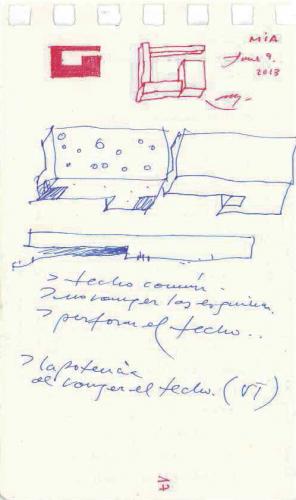 MIA
June 9.
2013
> techo común.
> no romper las esquinas.
> perforar el techo..
> la potencia
de romper el techo. (VI)
17